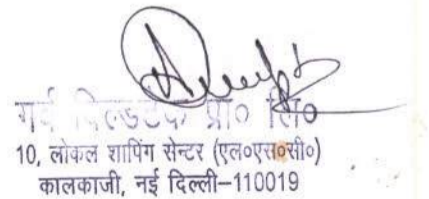 गर्व बिल्डटेक प्रा० लि०
10, लोकल शापिंग सेन्टर (एल०एस०सी०)
कालकाजी, नई दिल्ली–110019